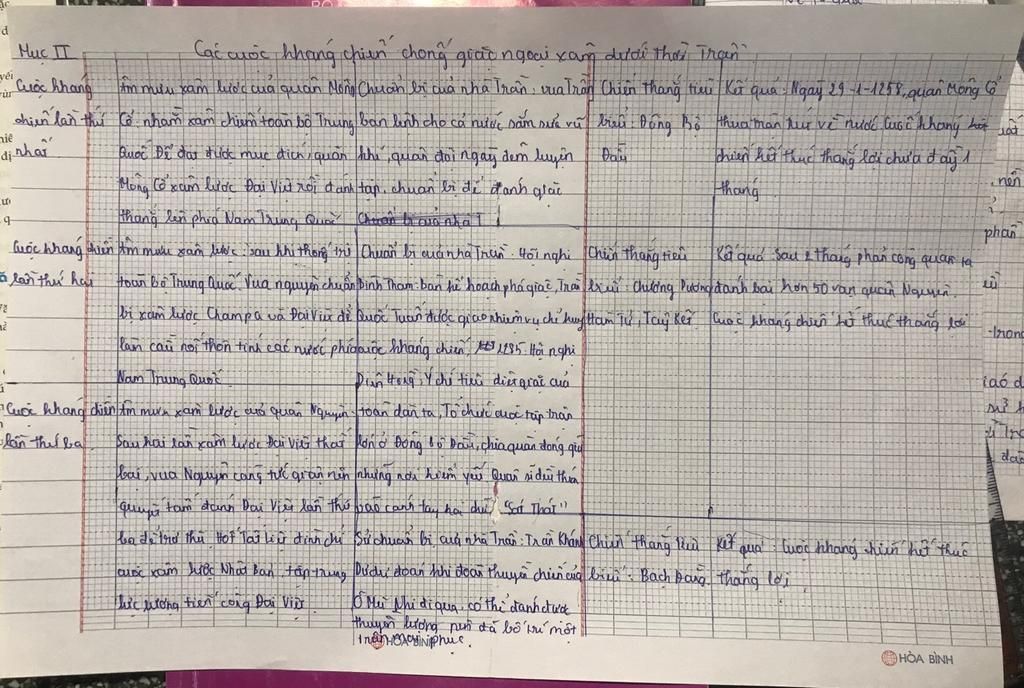 Mục II Các cuộc kháng chiến chống giặc ngoại xâm dưới thời Trần
Cuộc kháng
chiến lần thứ
nhất
Âm mưu xâm lược của quân Mông
Cổ: nhằm xâm chiếm toàn bộ Trung
Quốc Để đạt được mục đích, quân
Mông Cổ xâm lược Đại Việt rồi đánh
thẳng lên phía Nam Trung Quốc
Chuẩn bị của nhà Trần: vua Trần
ban lệnh cho cả nước sắm sửa vũ
khí, quân đội ngày đêm luyện
tập, chuẩn bị để đánh giặc
Chiến thắng tiêu
biểu: Đông Bộ
Đầu
Kết quả: Ngày 29-1-1258, quân Mông Cổ
thua trận rút về nước Cuộc kháng
chiến kết thúc thắng lợi chưa đầy 1
tháng
Cuộc kháng chiến
lần thứ hai
Âm mưu xâm lược: sau khi thống trị
toàn bộ Trung Quốc. Vua nguyên chuẩn
bị xâm lược Champa và Đại Việt để
làm cầu nối thôn tính các nước phía
Nam Trung Quốc
Chuẩn bị của nhà Trần: Hội nghị
Bình Than: bàn kế hoạch phá giặc, Trần
Quốc Tuấn được giao nhiệm vụ chỉ huy
cuộc kháng chiến, 1285. Hội nghị
Diên Hồng, Ý chí tiêu diệt giặc của
toàn dân ta, Tổ chức cuộc tập trận
lớn ở Đông bộ Đầu, chia quân đóng giữ
những nơi hiểm yếu Quân sĩ đều thích
vào cánh tay hai chữ "Sát Thát"
Chiến thắng tiêu
biểu: Chương Dương
Hàm Tử, Tây Kết
Kết quả: Sau 2 tháng phản công quân ta
đánh bại hơn 50 vạn quân Nguyên.
Cuộc kháng chiến kết thúc thắng lợi
Cuộc kháng chiến
lần thứ ba
Âm mưu xâm lược của quân Nguyên:
Sau hai lần xâm lược Đại Việt thất
bại, vua Nguyên càng tức giận nên
quyết tâm đánh Đại Việt lần thứ
ba để trả thù Hốt Tất Liệt đình chỉ
cuộc xâm lược Nhật Bản, tập trung
lực lượng tiến công Đại Việt
Sự chuẩn bị của nhà Trần: Trần Khánh
Dư dự đoán khi đoàn thuyền chiến của
Ô Mã Nhi đi qua, có thể đánh được
thuyền lương nên đã bố trí một
trận mai phục
Chiến thắng tiêu
biểu: Bạch Đằng.
Kết quả: Cuộc kháng chiến kết thúc
thắng lợi
HÒA BÌNH
HÒA BÌNH